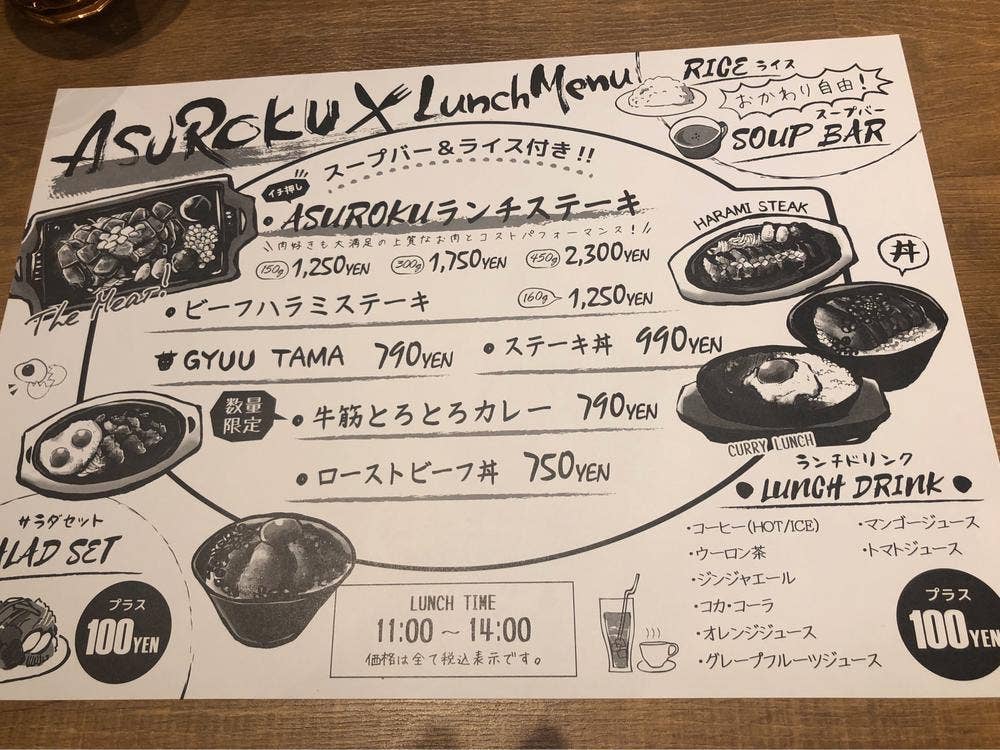 ASUROKU Lunch Menu
RICE ライス
おかわり自由!
スープバー
SOUP BAR
スープバー&ライス付き!!
イチ押し
・ASUROKUランチステーキ
肉好きも大満足の上質なお肉とコストパフォーマンス!
150g 1,250YEN 300g 1,750YEN 450g 2,300YEN
The Meat!
・ビーフハラミステーキ
160g 1,250YEN
HARAMI STEAK
丼
GYUU TAMA 790YEN
・ステーキ丼 990YEN
数量限定
・牛筋とろとろカレー 790YEN
・ローストビーフ丼 750YEN
CURRY LUNCH
サラダセット
ALAD SET
プラス
100YEN
LUNCH TIME
11:00~14:00
価格は全て税込表示です。
ランチドリンク
●LUNCH DRINK●
・コーヒー(HOT/ICE)
・ウーロン茶
・ジンジャエール
・コカ・コーラ
・オレンジジュース
・グレープフルーツジュース
・マンゴージュース
・トマトジュース
プラス
100YEN